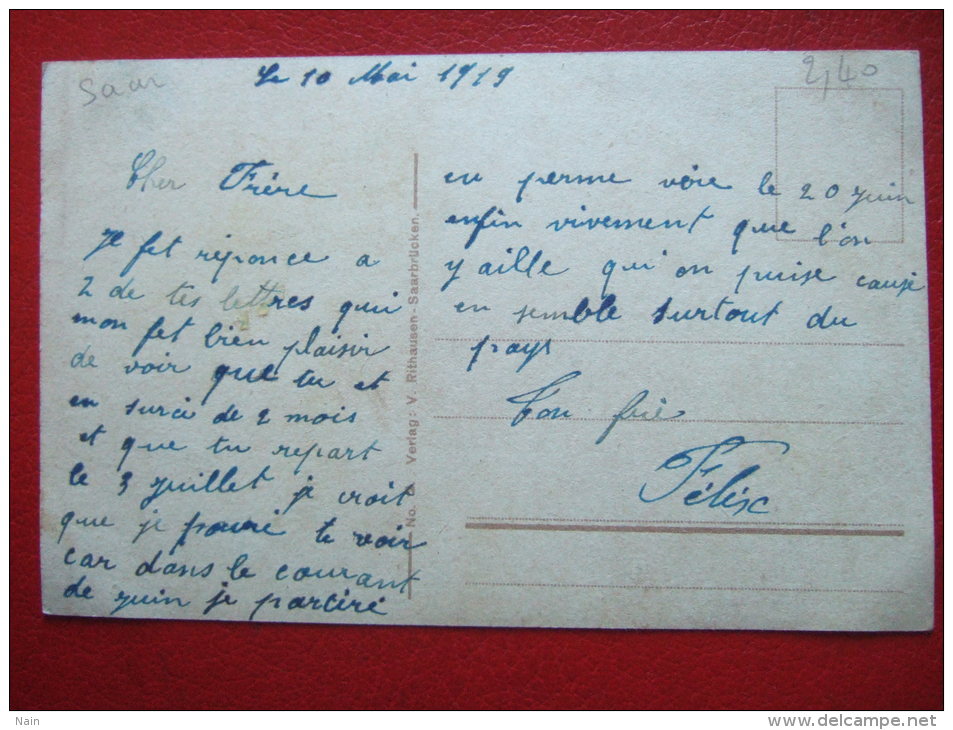 Saar
2,40
Le 10 Mai 1919
Cher Frère
Je fet réponce a
2 de tes lettres qui
mon fet bien plaisir
de voir que tu et
en surci de 2 mois
et que tu repart
le 3 juillet je croit
que je pouré te voir
car dans le courant
de juin je partiré
No. Verlag: V. Rithausen-Saarbrücken.
en perme voie le 20 juin
enfin vivement que l'on
y aille qu'on puise causé
en semble surtout du
pays
Ton frie
Félix
Nain
www.delcampe.net